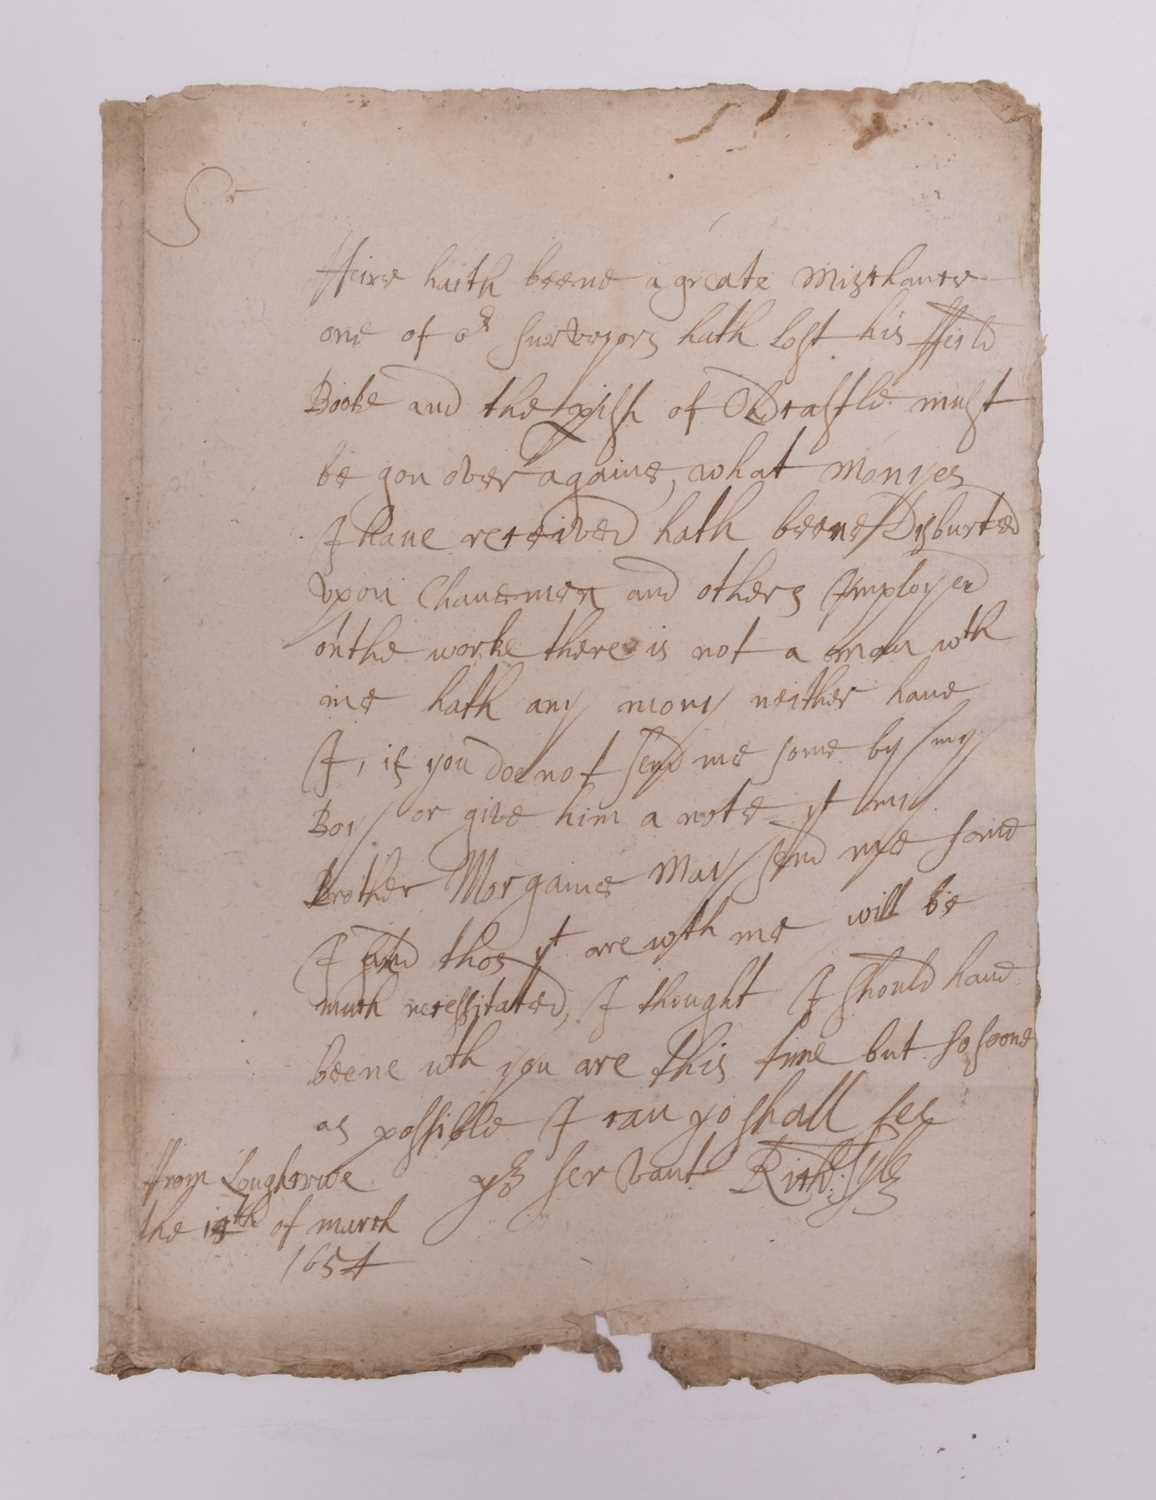 Sr
Heire haith beene a greate Mischance
one of or Surveyors hath lost his ffeild
Booke and the pish of Oldcastle must
be gon over againe, what monyes
I have received hath beene Disbursed
upon Chanemen and others Imployed
on the worke there is not a man wth
me hath any mony neither have
I, if you doe not send me some by my
Boy or give him a note yt my
Brother Morgaine May send me some
I and thos yt are wth me will be
much necessitated, I thought I should have
beene wth you are this time but so soone
as possible I can yo shall see
yor servant Rich:
ffrom Loughcrwe
the of march
1654